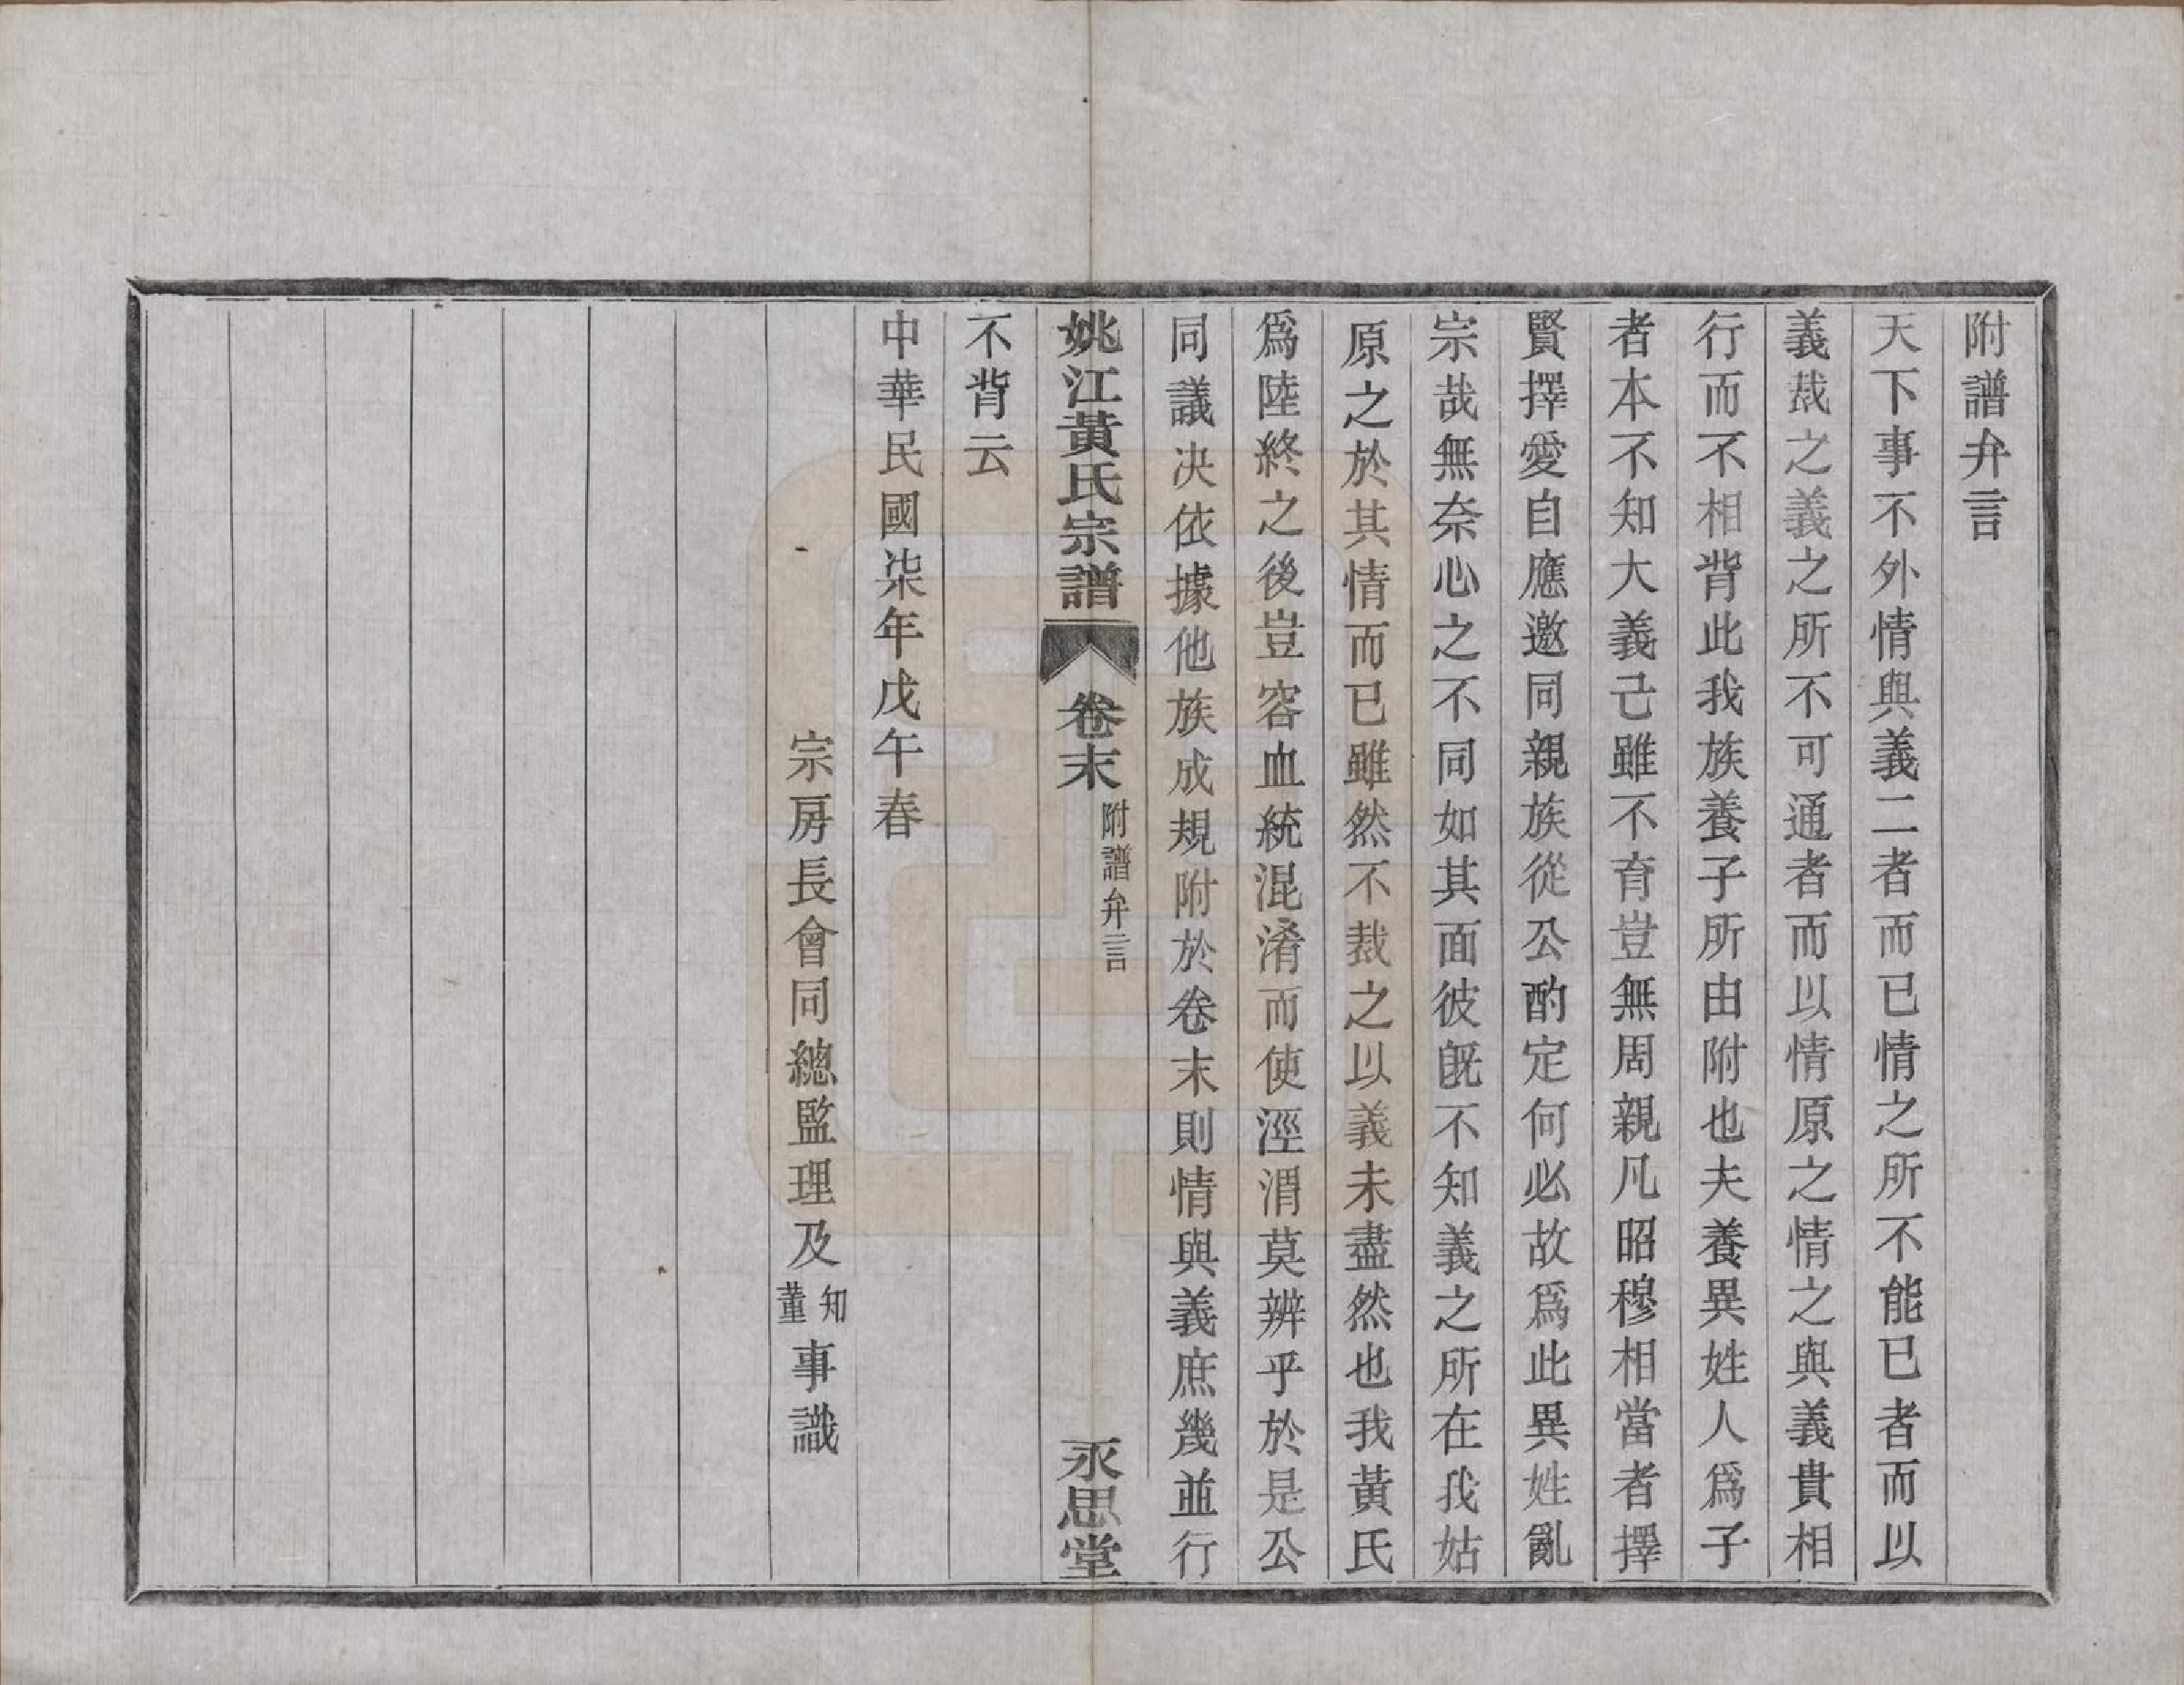 附譜弁言
天下事不外情與義二者而已情之所不能已者而以
義裁之義之所不可通者而以情原之情之與義貴相
行而不相背此我族養子所由附也夫養異姓人爲子
者本不知大義己雖不育豈無周親凡昭穆相當者擇
賢擇愛自應邀同親族從公酌定何必故爲此異姓亂
宗哉無奈心之不同如其面彼既不知義之所在我姑
原之於其情而已雖然不裁之以義未盡然也我黃氏
爲陸終之後豈容血統混淆而使涇渭莫辨乎於是公
同議决依據他族成規附於卷末則情與義庶幾並行
姚江黃氏宗譜 卷末 附譜弁言 永思堂
不背云
中華民國柒年戊午春
宗房長會同總監理及知董事識